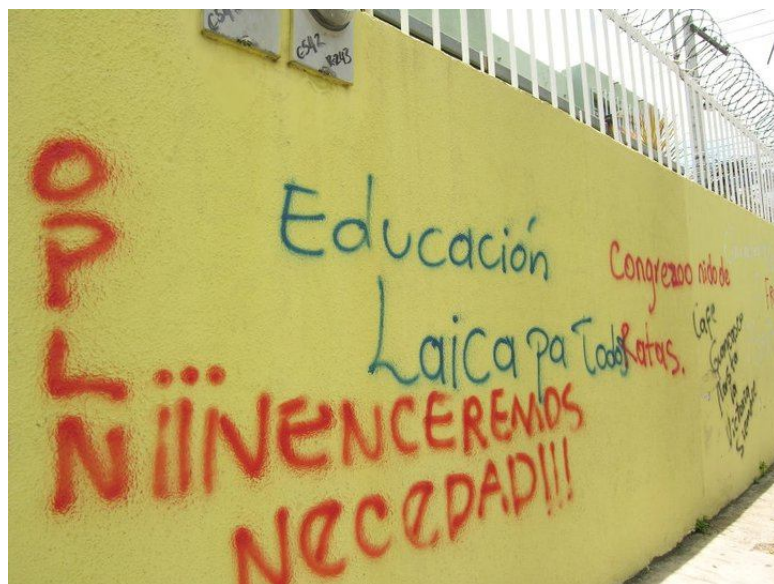 CS42
CS42
R243
OPLN
Educación
Laica pa Todos
¡¡¡VENCEREMOS
NeCEDAD!!!
Congrezoo nido de
Ratas.
Cafe
Guancasco
Hasta
la
Victoria
Siempre